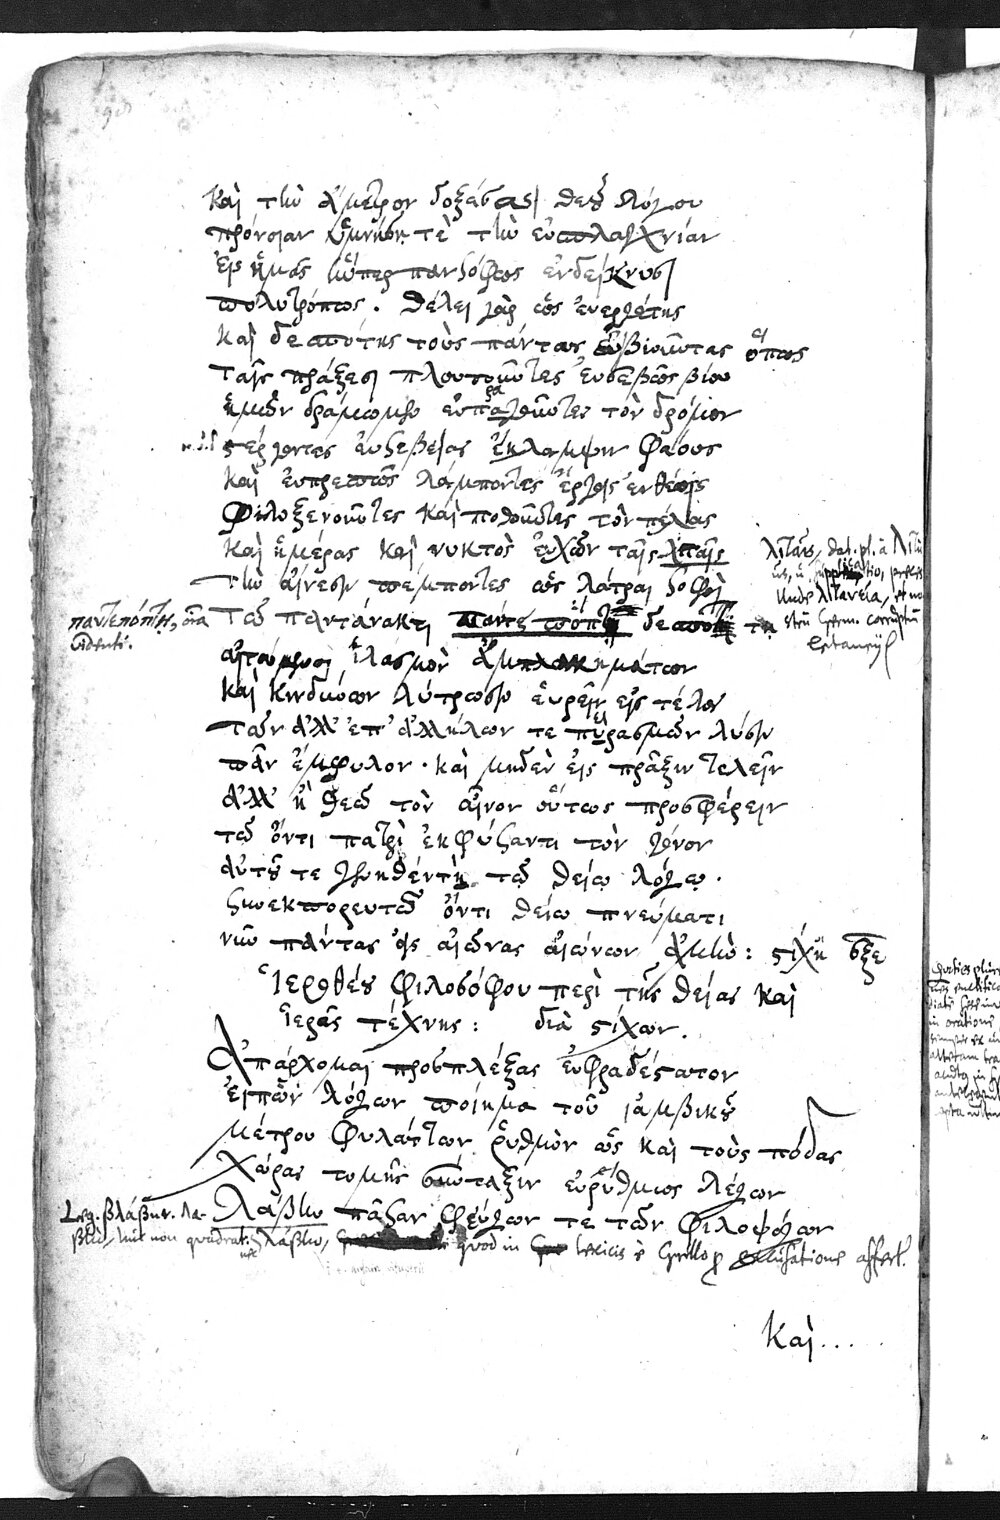 καὶ τὴν ἄμετρον δοξάσασι θεοῦ λόγου
πρόνοιαν ὑμνήσῃ τὲ τὴν εὐσπλαγχνίαν
εἰς ἡμᾶς ὥσπερ πανσόφως ἐνδείκνυσι
πολυτρόπως . θέλει γὰρ ὡς εὐεργέτης
καὶ δεσπότης τοὺς πάντας εὐβιοῦντας ὅπως
ταῖς πράξεσι πλουτοῦντες εὐσεβῶς βίου
ἡμῶν δράμωμεν τὸν δρόμον
στέργοντες εὐσεβείας ἔκλαμψιν φάους
καὶ εὐπρεπῶς λάμποντες ἔργοις ἐνθέοις
φιλοξενοῦντες καὶ ποθοῦντες τὸν πέλας
καὶ ἡμέρας καὶ νυκτὸς εὐχῶν ταῖς λιταῖς
τὴν αἴνεσιν πέμποντες ὡς λάτραι σοφοὶ
τῷ παντάνακτι παντεπόπτῃ δεσπότῃ
αἰτούμενοι ἱλασμὸν ἀμπλακημάτων
καὶ κινδύνων λύτρωσιν εὑρεῖν εἰς τέλος
τῶν ἀλλ' ἐπ' ἀλλήλων τε πειρασμῶν λύσιν
πᾶν ἔμφυλον . καὶ μηδὲν εἰς πρᾶξιν τελεῖν
ἀλλ' ἢ θεῷ τὸν αἶνον οὕτως προσφέρειν
τῷ ὄντι πατρὶ ἐκφύσαντι τὸν γόνον
αὐτοῦ τε γεννηθέντι τῷ θείῳ λόγῳ .
συνεκπορευτῷ ὄντι θείῳ πνεύματι
νῦν πάντας εἰς αἰῶνας αἰώνων ἀμήν : στίχοι σξε
Ἱεροθέου φιλοσόφου περὶ τῆς θείας καὶ
ἱερᾶς τέχνης : διὰ στίχων .
Ἀπάρχομαι προσπλέξας εὐφραδέστατον
εἰπὼν λόγων ποίημα τοῦ ἰαμβικοῦ
μέτρου φυλάττων ῥυθμὸν ὡς καὶ τοὺς πόδας
χώρας τομῆς σύνταξιν εὐρύθμως λέγων
λάβην πᾶσαν φεύγων τε τῶν φιλοψόγων
λιταῖς, dat. pl. à λιτὴ
unde λιτανεία, et no-
strū Germ. corruptū
παντεπόπτης, oīa
videnti.
Leg. βλάβην. λά-
βην, hic non quadrat; nec λάβην, quod in lexicis è Cyrillo p
καὶ ...